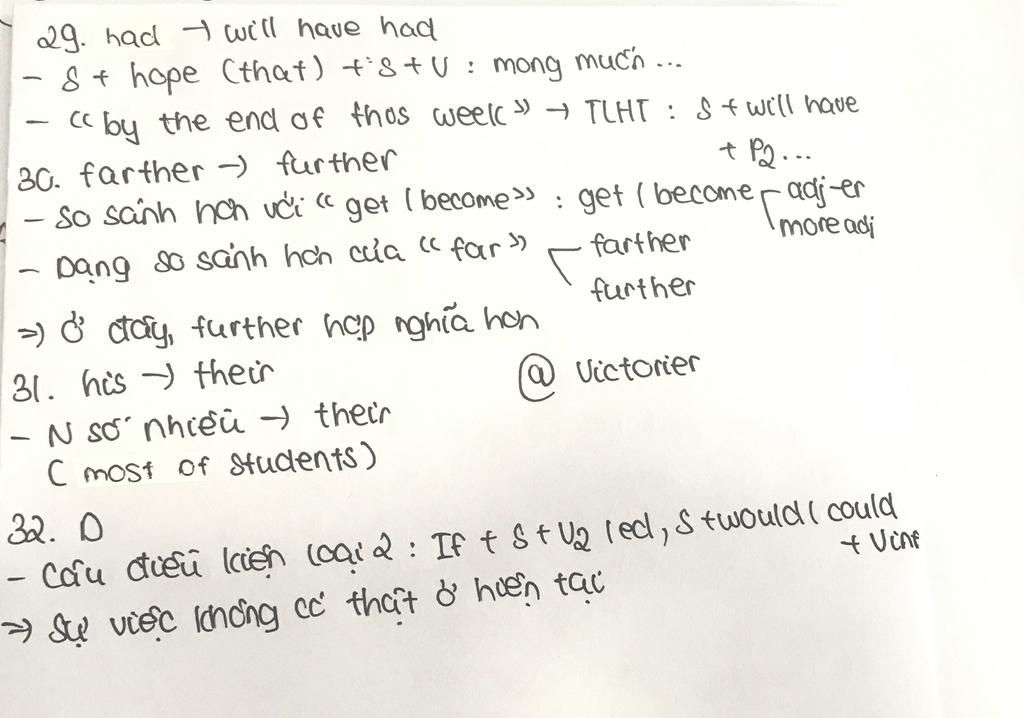 29. had → will have had
- S + hope (that) + S + V : mong muốn ...
- "by the end of thos week" → TLHT : S + will have
+ P2 ...
30. farther → further
- so sánh hơn với "get / become" : get / become adj-er
more adj
- Dạng so sánh hơn của "far" farther
further
=> Ở đây, further hợp nghĩa hơn
31. his → their
@ Victorier
- N số nhiều → their
( most of students)
32. D
- Câu điều kiện loại 2 : If + S + V2 / ed, S + would / could
+ Vinf
=> Sự việc không có thật ở hiện tại